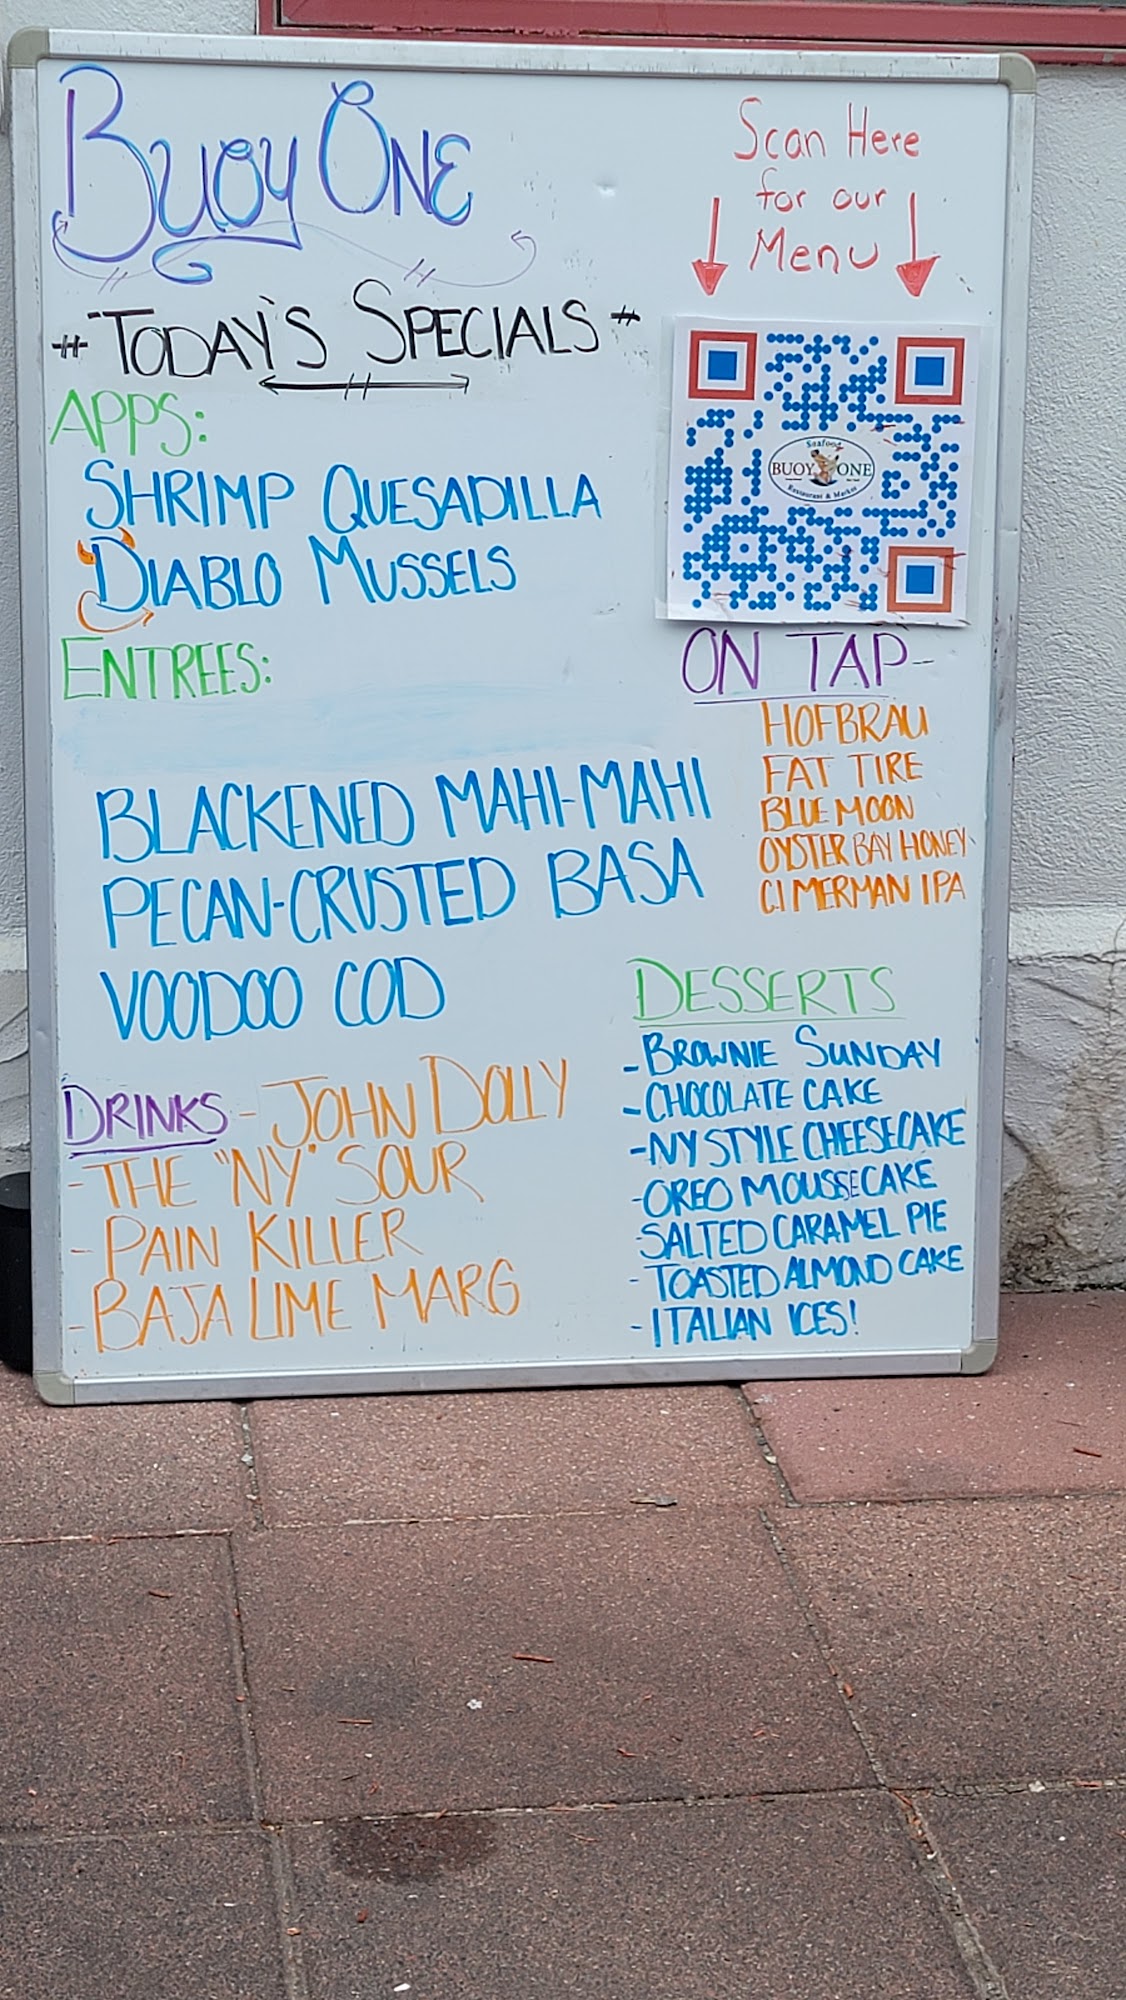 BUOY ONE
Scan Here
for our
Menu
TODAY'S SPECIALS
APPS:
SHRIMP QUESADILLA
DIABLO MUSSELS
Seafood
BUOY ONE
Restaurant & Market
ENTREES:
BLACKENED MAHI-MAHI
PECAN-CRUSTED BASA
VOODOO COD
ON TAP-
HOFBRAU
FAT TIRE
BLUE MOON
OYSTER BAY HONEY
C.I MERMAN IPA
DRINKS - JOHN DOLLY
- THE "NY" SOUR
- PAIN KILLER
- BAJA LIME MARG
DESSERTS
- BROWNIE SUNDAY
- CHOCOLATE CAKE
- NY STYLE CHEESECAKE
- OREO MOUSSECAKE
- SALTED CARAMEL PIE
- TOASTED ALMOND CAKE
- ITALIAN ICES!